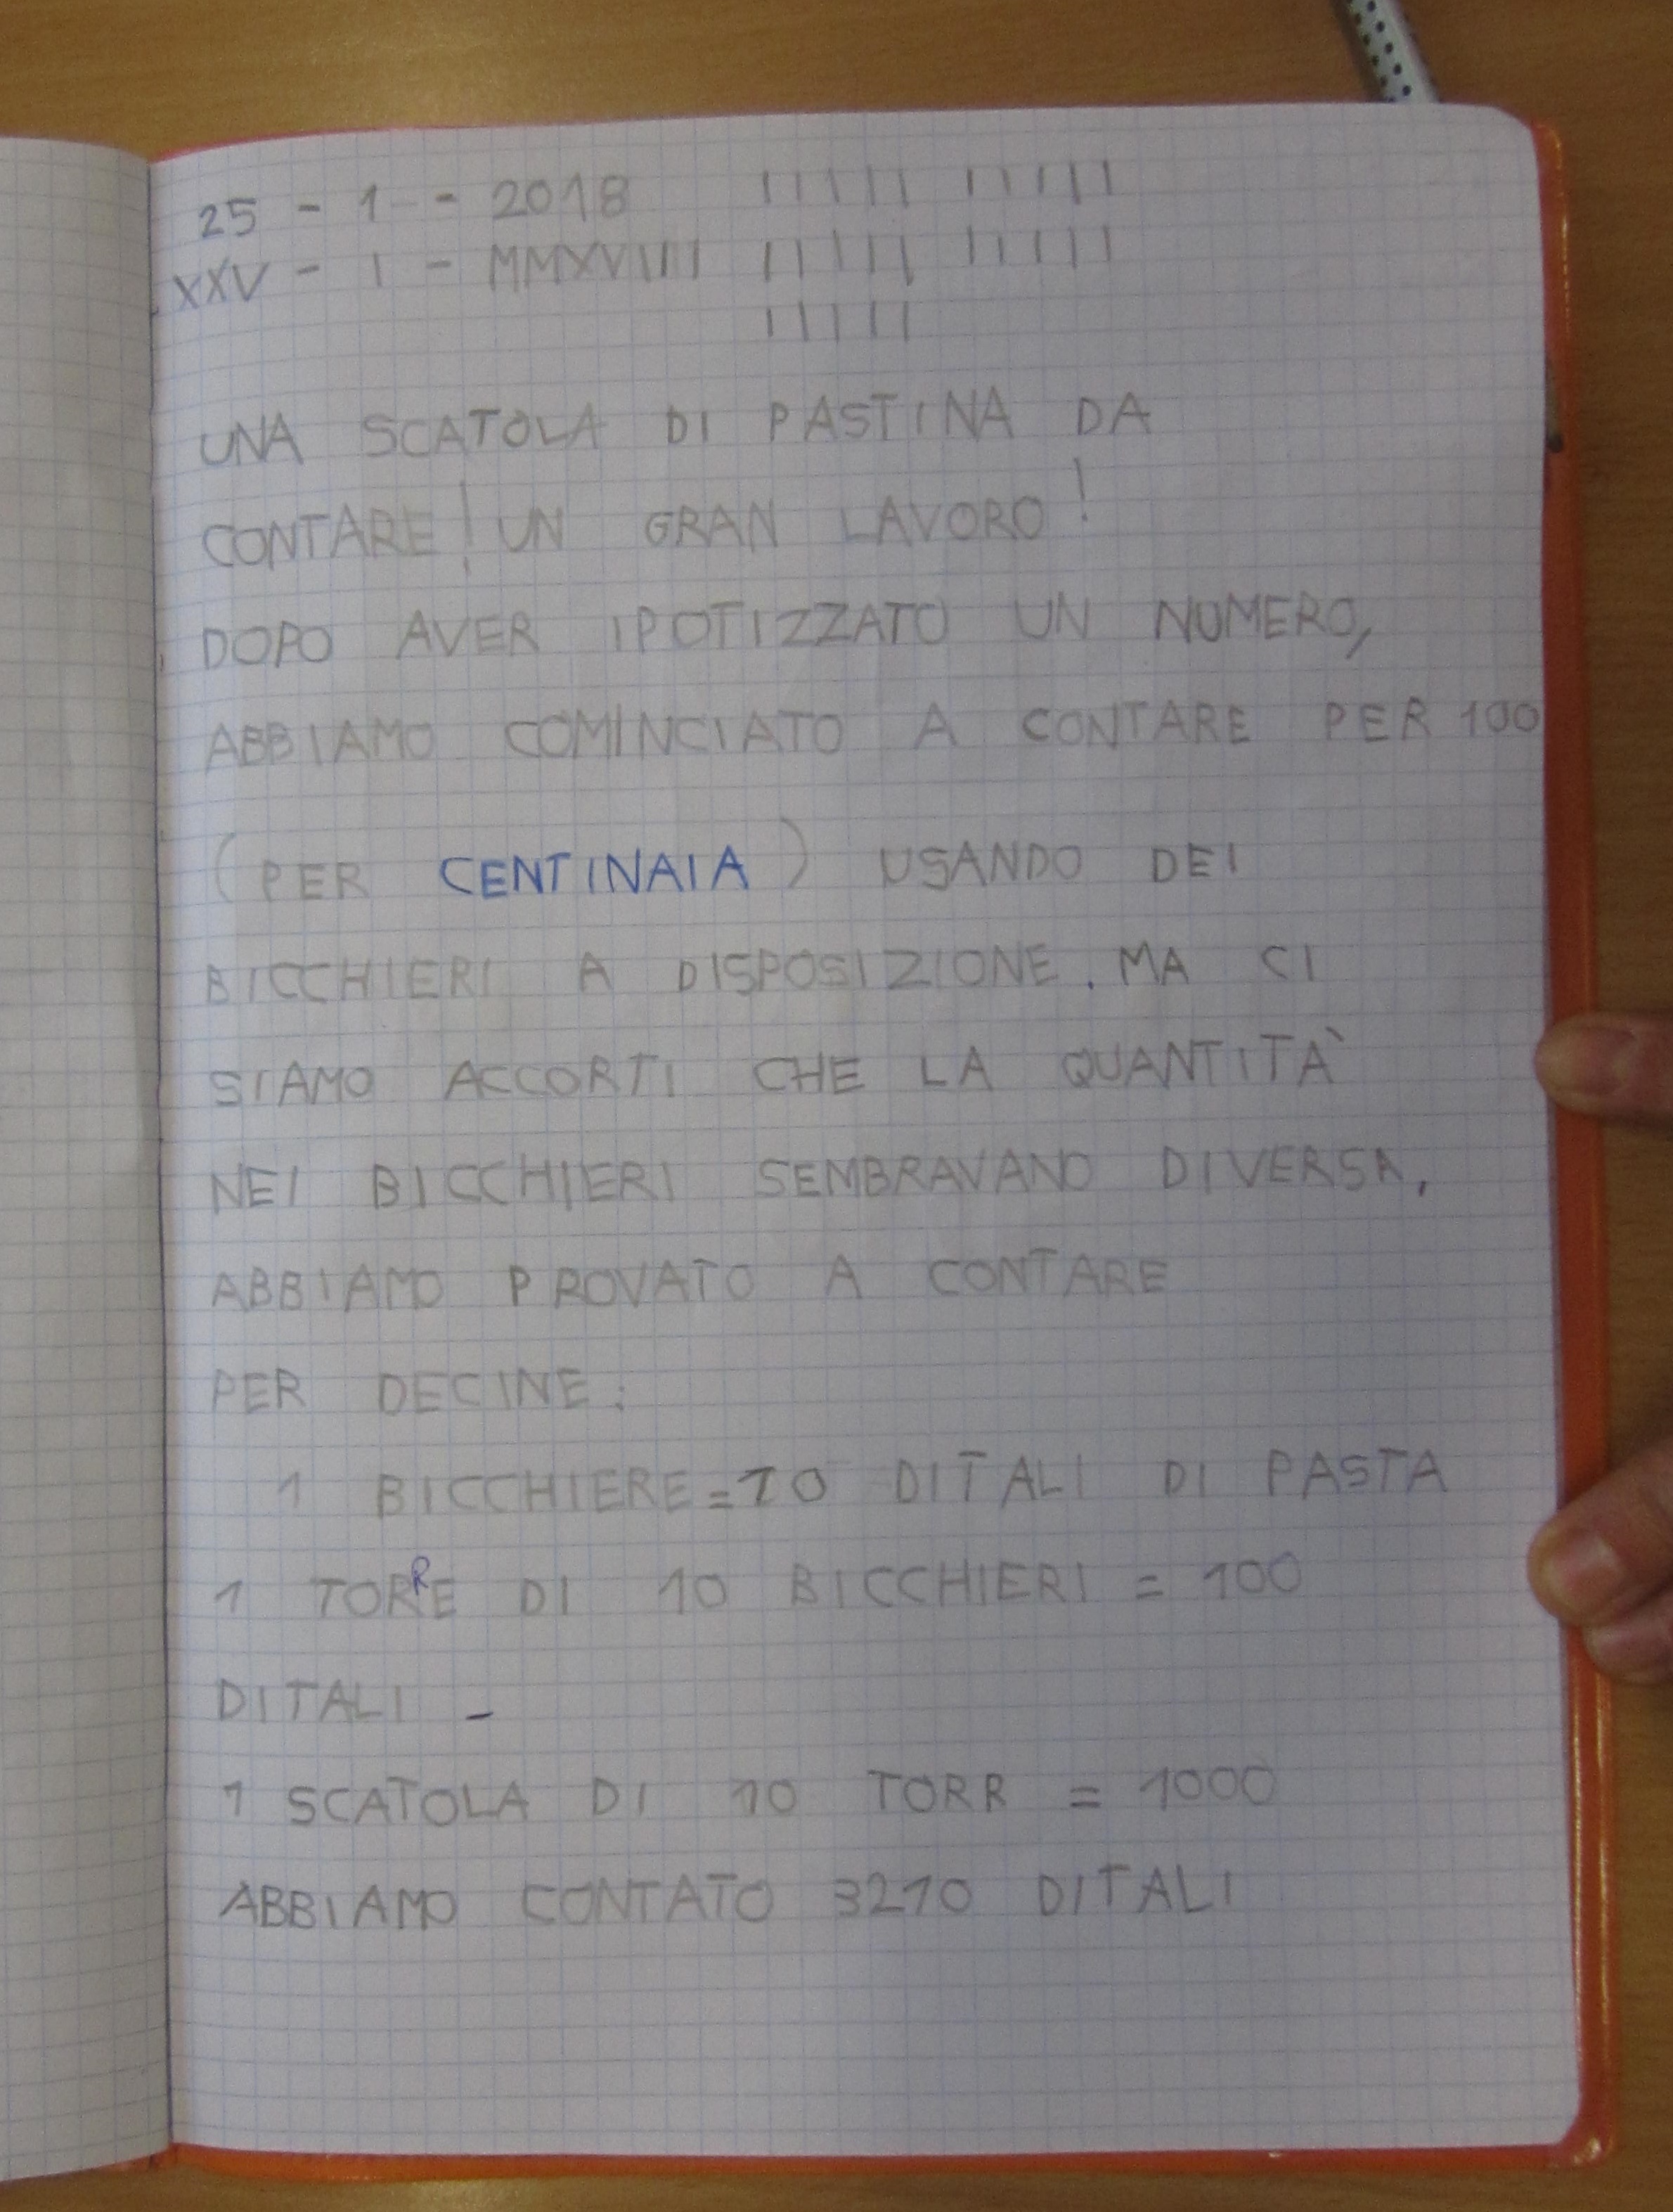 25 - 1 - 2018 IIIII IIIII
XXV - I - MMXVIII IIIII IIIII
IIIII
UNA SCATOLA DI PASTINA DA
CONTARE! UN GRAN LAVORO!
DOPO AVER IPOTIZZATO UN NUMERO,
ABBIAMO COMINCIATO A CONTARE PER 100
(PER CENTINAIA) USANDO DEI
BICCHIERI A DISPOSIZIONE. MA CI
SIAMO ACCORTI CHE LA QUANTITÀ
NEI BICCHIERI SEMBRAVANO DIVERSA,
ABBIAMO PROVATO A CONTARE
PER DECINE:
1 BICCHIERE=10 DITALI DI PASTA
1 TORRE DI 10 BICCHIERI = 100
DITALI -
1 SCATOLA DI 10 TORR = 1000
ABBIAMO CONTATO 3210 DITALI